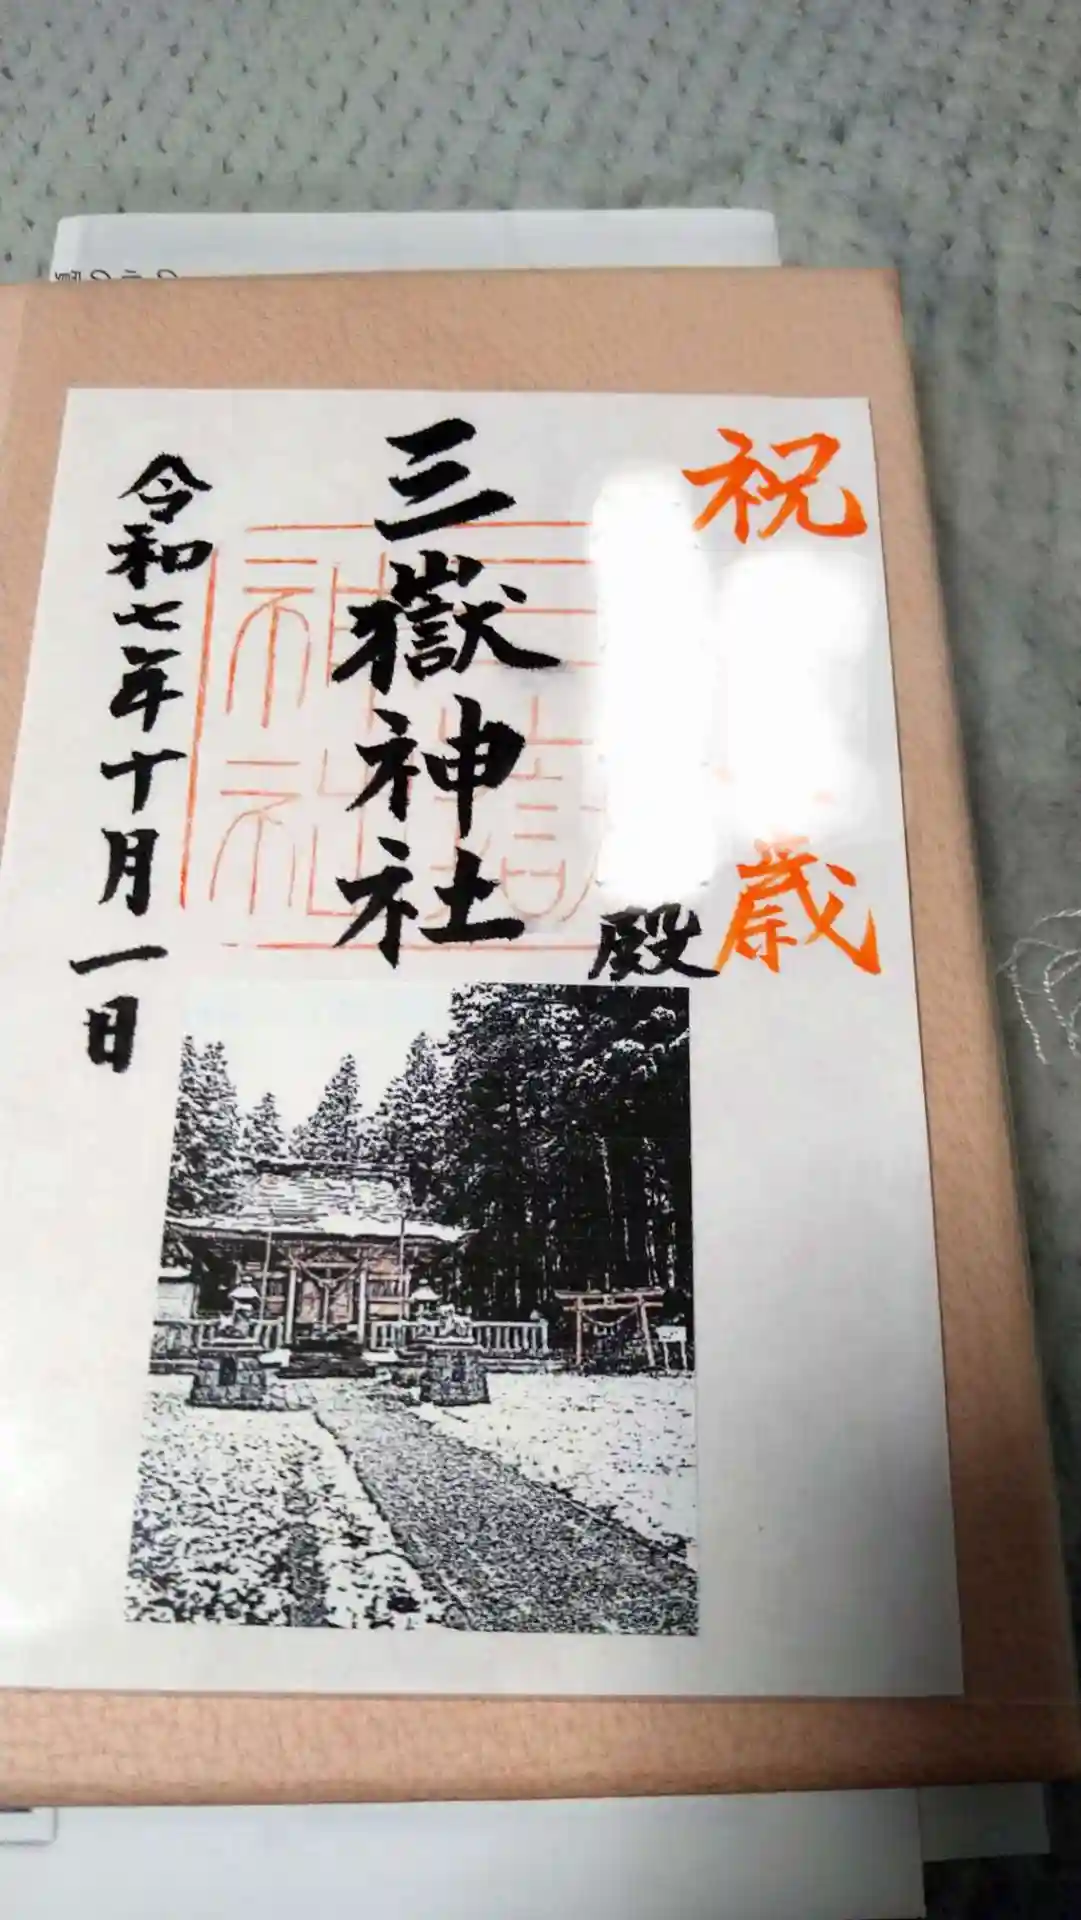 祝
歳
殿
三嶽神社
三嶽
神社
令和七年十月一日